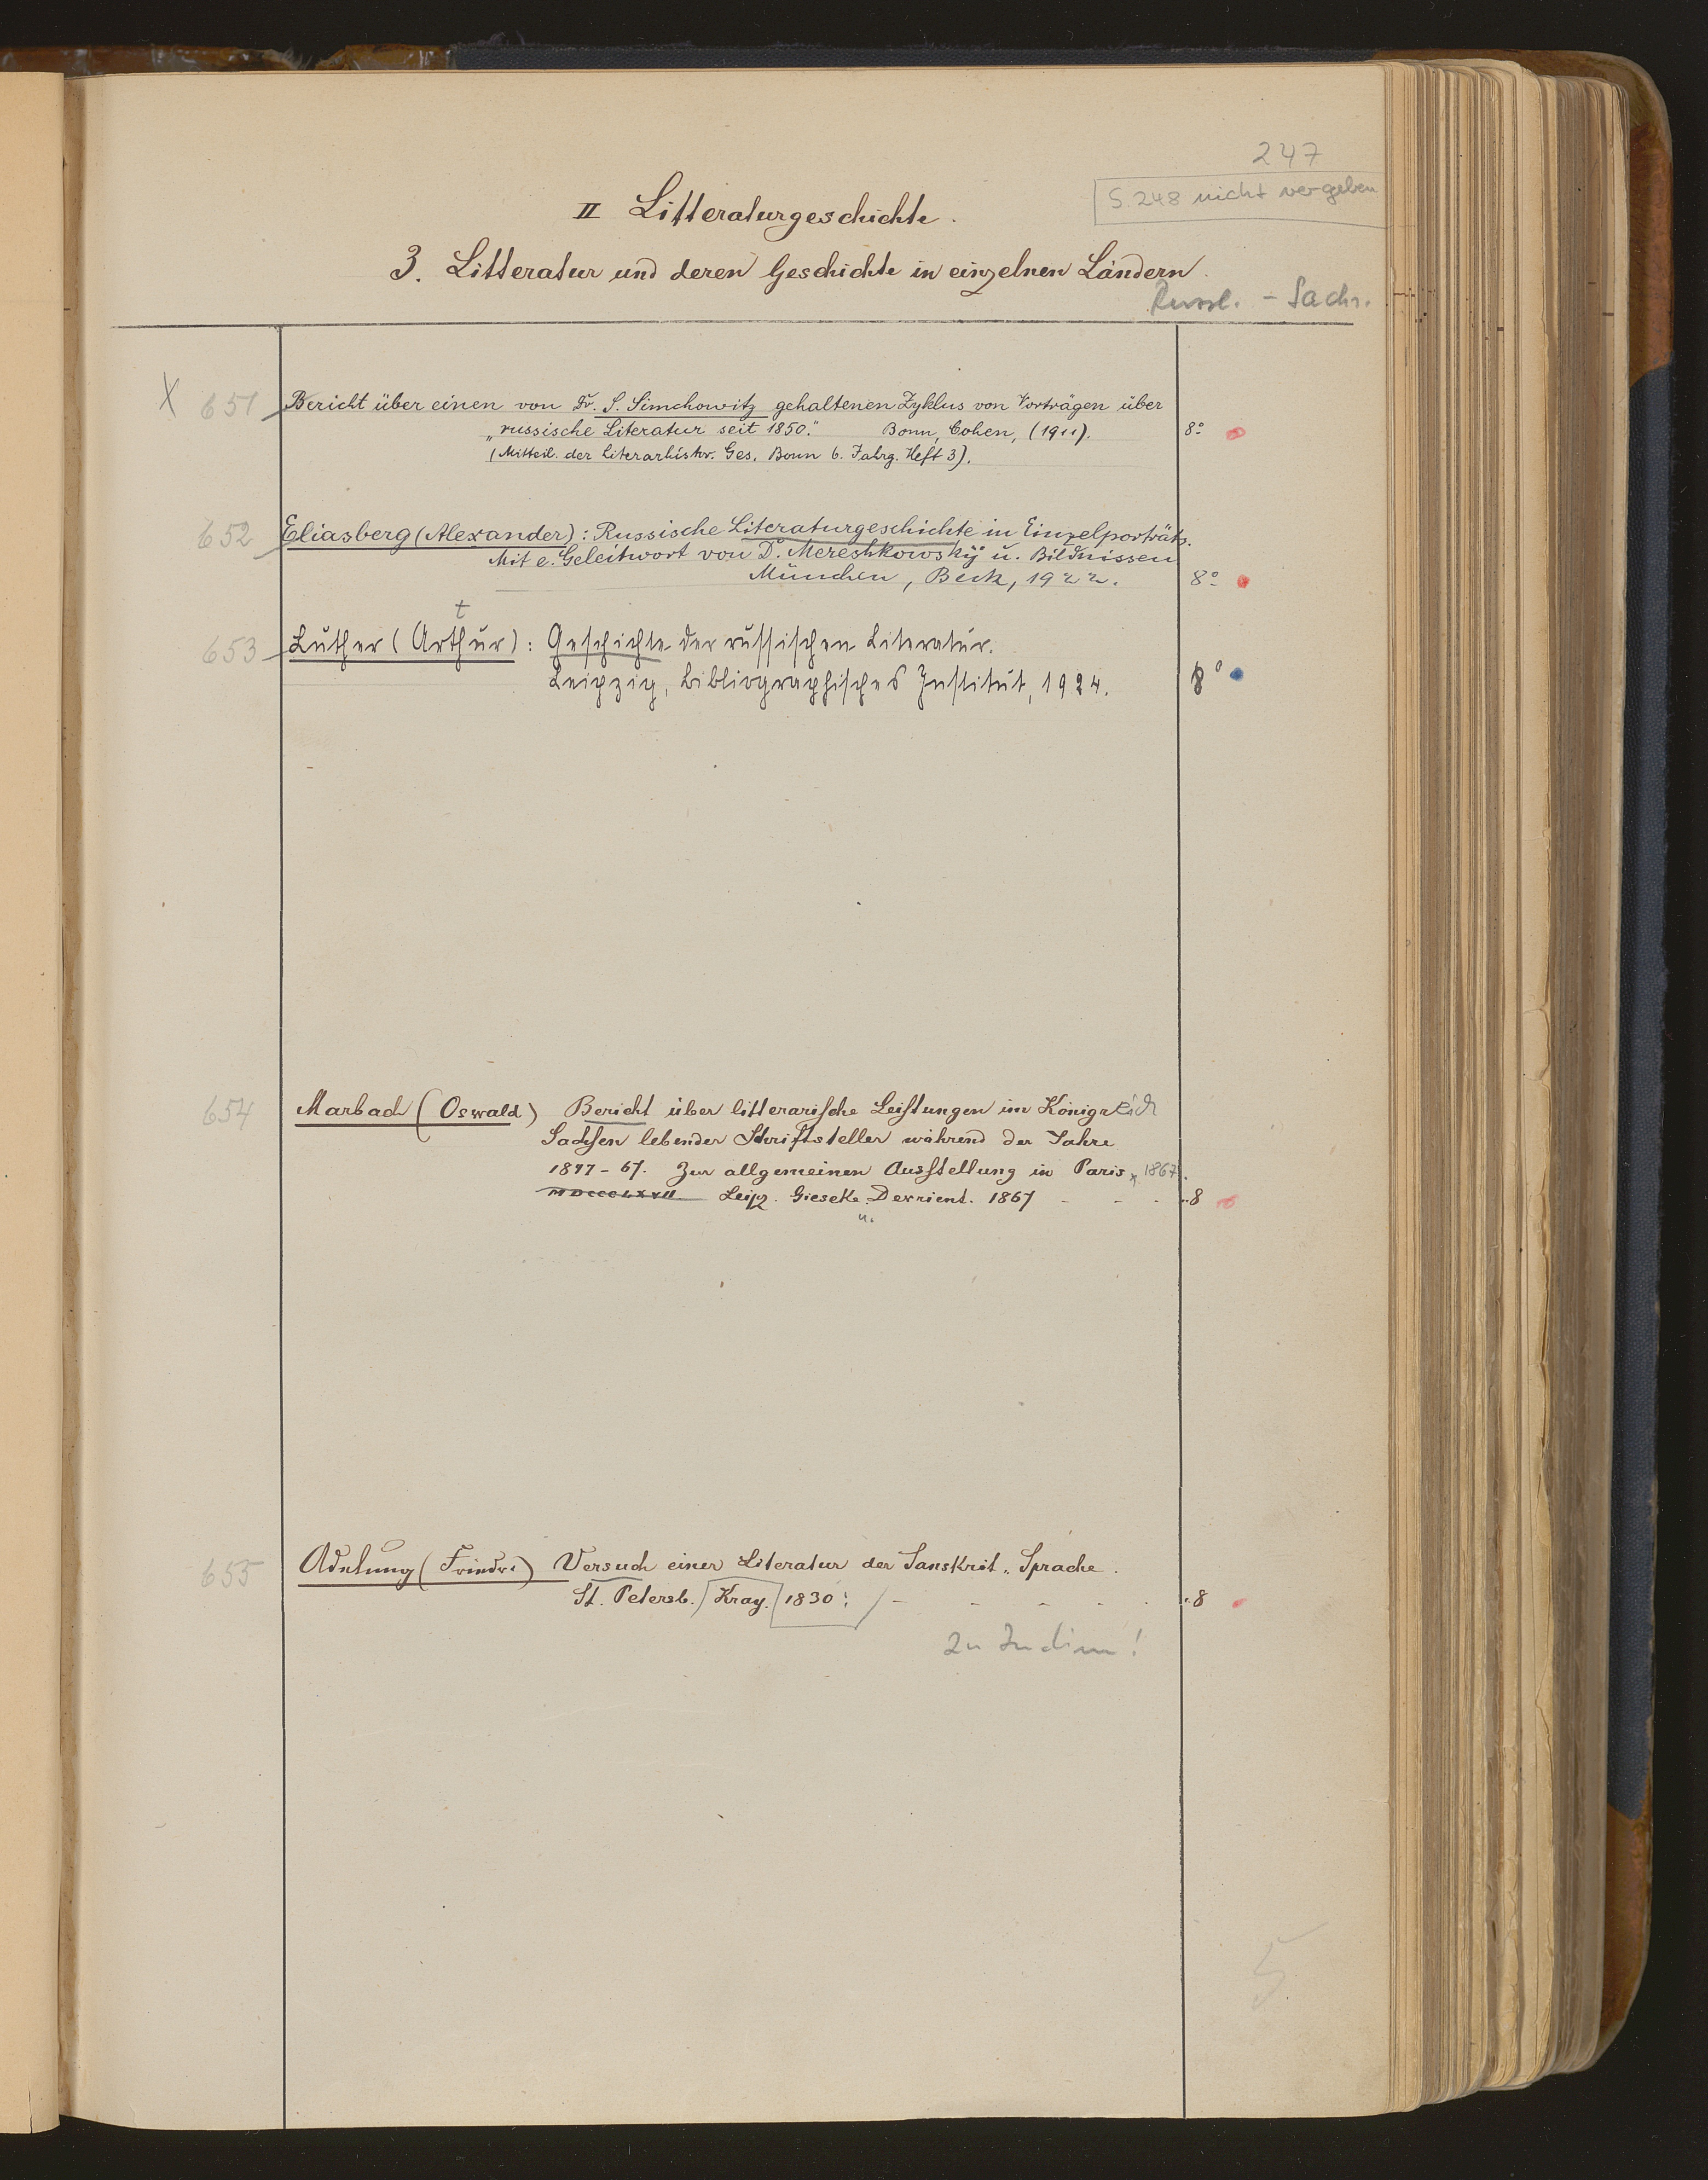 247
S. 248 nicht vergeben
II Litteraturgeschichte.
3. Litteratur und deren Geschichte in einzelnen Ländern.
Russl. - Sachs.
X 651 Bericht über einen von Dr. S. Simchowitz gehaltenen Zyklus von Vorträgen über
„russische Literatur seit 1850." Bonn, Cohen, (1911). 8°
(Mitteil. der Literarhistor. Ges. Bonn 6. Jahrg. Heft 3).
652 Eliasberg (Alexander): Russische Literaturgeschichte in Einzelporträts.
Mit e. Geleitwort von D. Mereshkowskij u. Bildnissen
München, Beck, 1922. 8°
t
653 Luther (Arthur): Geschichte der russischen Literatur.
Leipzig, Bibliographisches Institut, 1924. 8°
654 Marbach (Oswald) Bericht über litterarische Leistungen im Königreich
Sachsen lebender Schriftsteller während der Jahre
1847-67. Zur allgemeinen Ausstellung in Paris 1867.
MDCCCLXVII Leipz. Gieseke u. Devrient. 1867 - - - 8
655 Adelung (Friedr.) Versuch einer Literatur der Sanskrit-Sprache.
St. Petersb. Kray. 1830. - - - - - 8
Zu Indien!
5